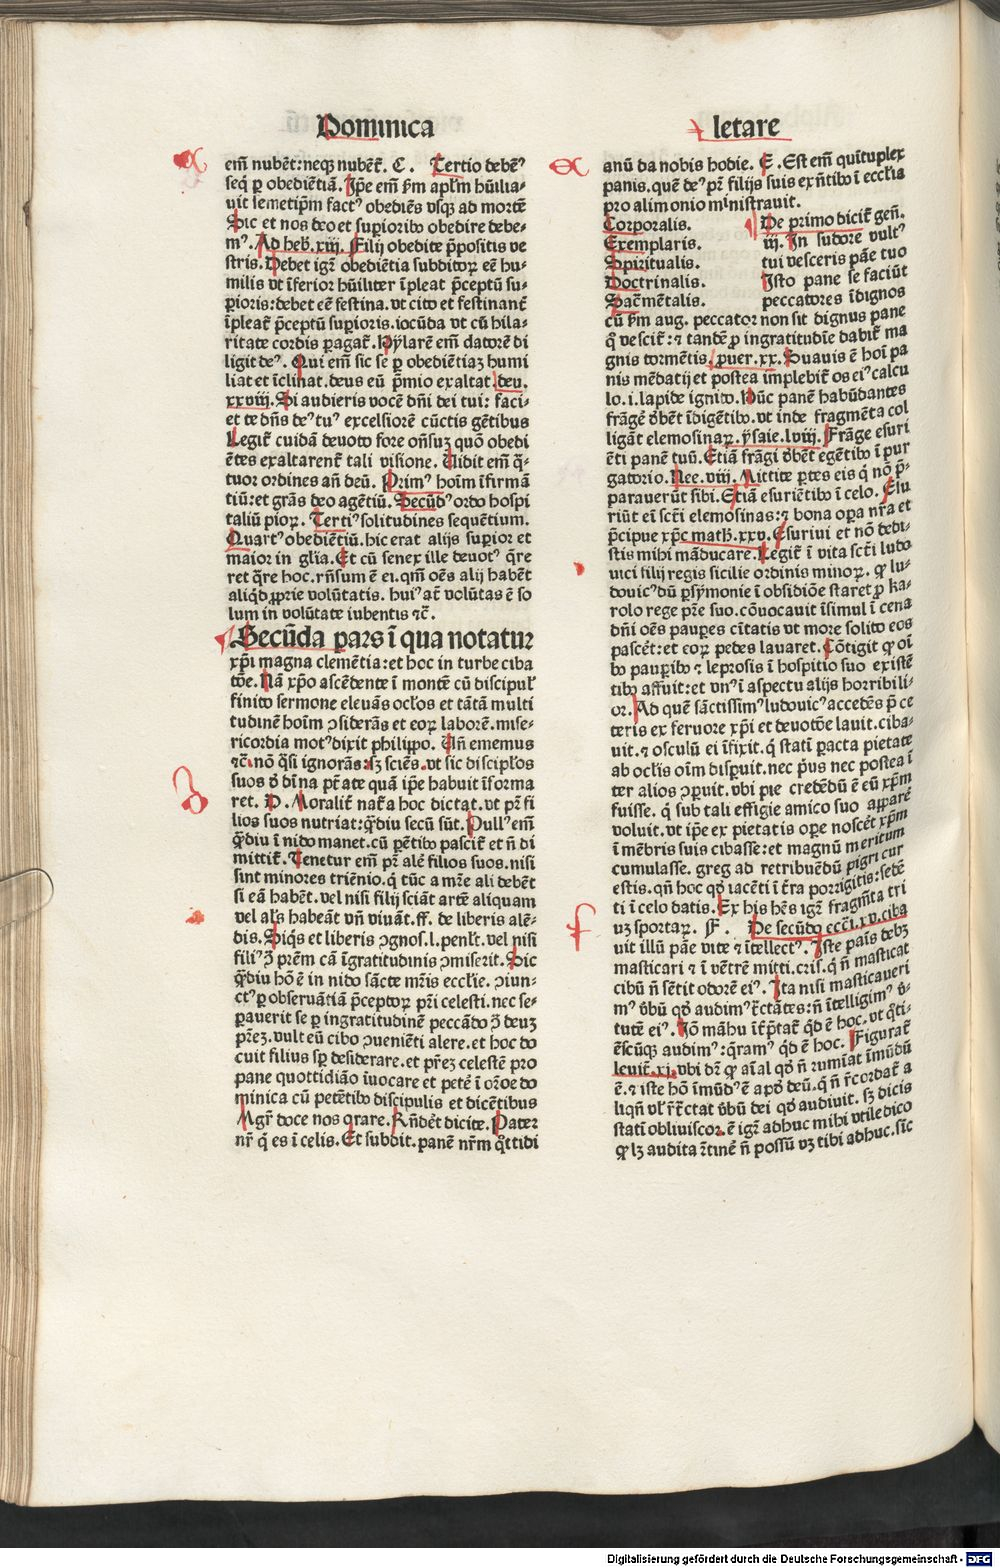 Dominica
letare
em̄ nubēt: neq; nubēt̄. C. Tertio debeꝰ
seq̄ ꝑ obediētiā. Ip̄e em̄ ẜm apl̄m hūilia-
uit semetip̄m factꝰ obediēs vsq; ad mortē
Sic et nos deo et sup̄iorib⁹ obedire debe-
mꝰ. Ad heb̄. xiij. Filij obedite p̄positis ve
stris. Debet igr̄ obediētia subditoꝝ eē hu-
milis vt īferior hūiliter īpleat p̄ceptū su-
p̄ioris: debet eē festina. vt cito et festinant̄
īpleat̄ p̄ceptū sup̄ioris. iocūda vt cū hila-
ritate cordis ꝑagat̄. Hylarē em̄ datorē di
ligit deꝰ. Qui em̄ sic se ꝑ obediētiaꝫ humi
liat et īclinat. deus eū p̄mio exaltat. deu.
xxviij. Si audieris vocē dn̄i dei tui: faci-
et te dn̄s deꝰ tuꝰ excelsiorē cūctis gētibus
Legit̄ cuidā deuoto fore on̄suꝫ quō obedi
ētes exaltarent̄ tali visione. Uidit em̄ q̄-
tuor ordines an̄ deū. Primꝰ hoīm īfirmā
tiū: et grās deo agētiū. Secūdꝰ ordo hospi
taliū pioꝝ. Tertiꝰ solitudines sequētium.
Quartꝰ obediētiū. hic erat alijs sup̄ior et
maior in gl̄ia. Et cū senex ille deuotꝰ q̄re
ret q̄re hoc. rn̄sum ē ei. qm̄ oēs alij habēt
aliq̇d ꝓprie volūtatis. huiꝰ at̄ volūtas ē so
lum in volūtate iubentis ⁊c̄.
Secūda pars ī qua notatur
xp̄i magna clemētia: et hoc in turbe ciba
tōe. Nā xp̄o ascēdente ī montē cū discipul̄
finito sermone eleuās ocl̄os et tātā multi
tudinē hoīm ꝯsiderās et eoꝝ laborē. mise-
ricordia motꝰ dixit philippo. Uñ ememus
⁊c̄. nō q̄si ignorās: sꝫ sciēs. vt sic discipl̄os
suos ð dīna pt̄ate quā ip̄e habuit īforma
ret. D. Moralit̄ nat̄a hoc dictat. vt pr̄ fi
lios suos nutriat: q̄diu secū sūt. Pullꝰ em̄
q̄diu ī nido manet. cū pētib⁹ pascit̄ et n̄ di
mittit̄. Tenetur em̄ pr̄ alē filios suos. nisi
sint minores triēnio. q̄ tūc a mr̄e ali debēt
si eā habēt. vel nisi filij sciāt artē aliquam
vel al̄s habeāt vn̄ viuāt. ff. de liberis alē-
dis. Siq̄s et liberis ꝯgnos. l. penl̄t. vel nisi
filiꝰ ꝯ̄ prēm cā īgratitudinis ꝯmiserit. Sic
q̄diu hō ē in nido sācte mr̄is eccl̄ie. ꝯiun-
ctꝰ ꝑ obseruātiā p̄ceptoꝝ pr̄i celesti. nec se-
pauerit se ꝑ ingratitudinē peccādo ꝯ̄ deuꝫ
pr̄eꝫ. vult eū cibo ꝯueniēti alere. et hoc do
cuit filius sp̄ desiderare. et pr̄eꝫ celestē pro
pane quottidiāo īuocare et petē ī or̄oe do
minica cū petētib⁹ discipulis et dicētibus
Mgr̄ doce nos orare. Rn̄dēt dicite. Pater
nr̄ q̄ es ī celis. Et subdit. panē nr̄m q̊ttidi
anū da nobis hodie. E. Est em̄ quītuplex
panis. quē deꝰ pr̄ filijs suis exn̄tib⁹ ī eccl̄ia
pro alimonio ministrauit.
Corporalis.
Exemplaris.
Spiritualis.
Doctrinalis.
Sacr̄mētalis.
De primo dicit̄ gen̄.
iij. In sudore vultꝰ
tui vesceris pāe tuo
Isto pane se faciūt
peccatores īdignos
cū ẜm aug. peccator non sit dignus pane
q̄ vescit̄: ⁊ tandē ꝓ ingratitudīe dabit̄ ma
gnis tormētis. ꝓuer. xx. Suauis ē hoī pa
nis mēdatij et postea implebit̄ os eiꝰ calcu
lo. i. lapide ignito. Hūc panē habūdantes
frāgē ðbēt īdigētib⁹. vt inde fragmēta col
ligāt elemosinaꝝ. ysaie. lviij. Frāge esuri
ēti panē tuū. Etiā frāgi ðbēt egētib⁹ ī pur
gatorio. Nee. viij. Mittite ꝑtes eis q̄ nō p̄-
parauerūt sibi. Etiā esuriētib⁹ ī celo. Elu
riūt ei sct̄i elemosinas: ⁊ bona oꝑa nr̄a et
p̄cipue xp̄c math̄. xxv. Esuriui et nō dedi-
stis mihi māducare. Legit̄ ī vita sct̄i ludo
uici filij regis sicilie ordinis minoꝝ. ꝙ lu-
douicꝰ dū ꝑsymonie ī obsidiōe staret ꝓ ka-
rolo rege pr̄e suo. cōuocauit īsimul ī cena
dn̄i oēs pauꝑes cītatis vt more solito eos
pascēt: et eoꝝ pedes lauaret. Cōtigit ꝙ oī
b⁹ paupib⁹ ⁊ leprosis ī hospitio suo existē
tib⁹ affuit: et vnꝰ ī aspectu alijs horribili-
or. Ad quē sāctissimꝰ ludouicꝰ accedēs p̄ ce
teris ex feruore xp̄i et deuotōe lauit. ciba-
uit. ⁊ osculū ei īfixit. q̄ statī ꝑacta pietate
ab ocl̄is oīm disꝑuit. nec pꝰus nec postea ī
ter alios ꝯꝑuit. vbi pie credēdū ē eū xp̄m
fuisse. q̄ sub tali effigie amico suo apparē
voluit. vt ip̄e ex pietatis oꝑe noscēt xp̄m
ī mēbris suis cibasse: et magnū meritum
cumulasse. greg ad retribuēdū pigri cur
estis. qn̄ hoc qd̄ iacēti ī t̄ra porrigitis: sedē
ti ī celo datis. Ex his hēs igr̄ fragm̄ta tri
uꝫ sportaꝝ. F. De secūdo eccl̄. xv. ciba
uit illū pāe vite ⁊ ītellectꝰ. Iste pāis debꝫ
masticari ⁊ ī vētrē mitti. cris. q̄ n̄ masticat
cibū n̄ sētit odorē eiꝰ. Ita nisi masticaueri
mꝰ v̄bū qd̄ audimꝰ tr̄ctātes: n̄ ītelligimꝰ v̄-
tutē eiꝰ. Iō māhu īt̄ptat̄ qd̄ ē hoc. vt q̊ti-
ēscūq; audimꝰ: q̄ramꝰ qd̄ ē hoc. Figurat̄
leuit̄. xj. vbi dr̄ ꝙ aīal qd̄ n̄ rumīat īmūdū
ē. ⁊ iste hō īmūdꝰ ē apd̄ deū. q̄ n̄ r̄cordat̄ a
liqn̄ vl̄ r̄tr̄ctat v̄bū dei qd̄ audiuit. sꝫ dicis
statī obliuiscor. ē igr̄ adhuc mihi vtile dico
ꝙ lꝫ audita rtīnē n̄ possū vꝫ tibi adhuc. sīc
Digitalisierung gefördert durch die Deutsche Forschungsgemeinschaft - DFG